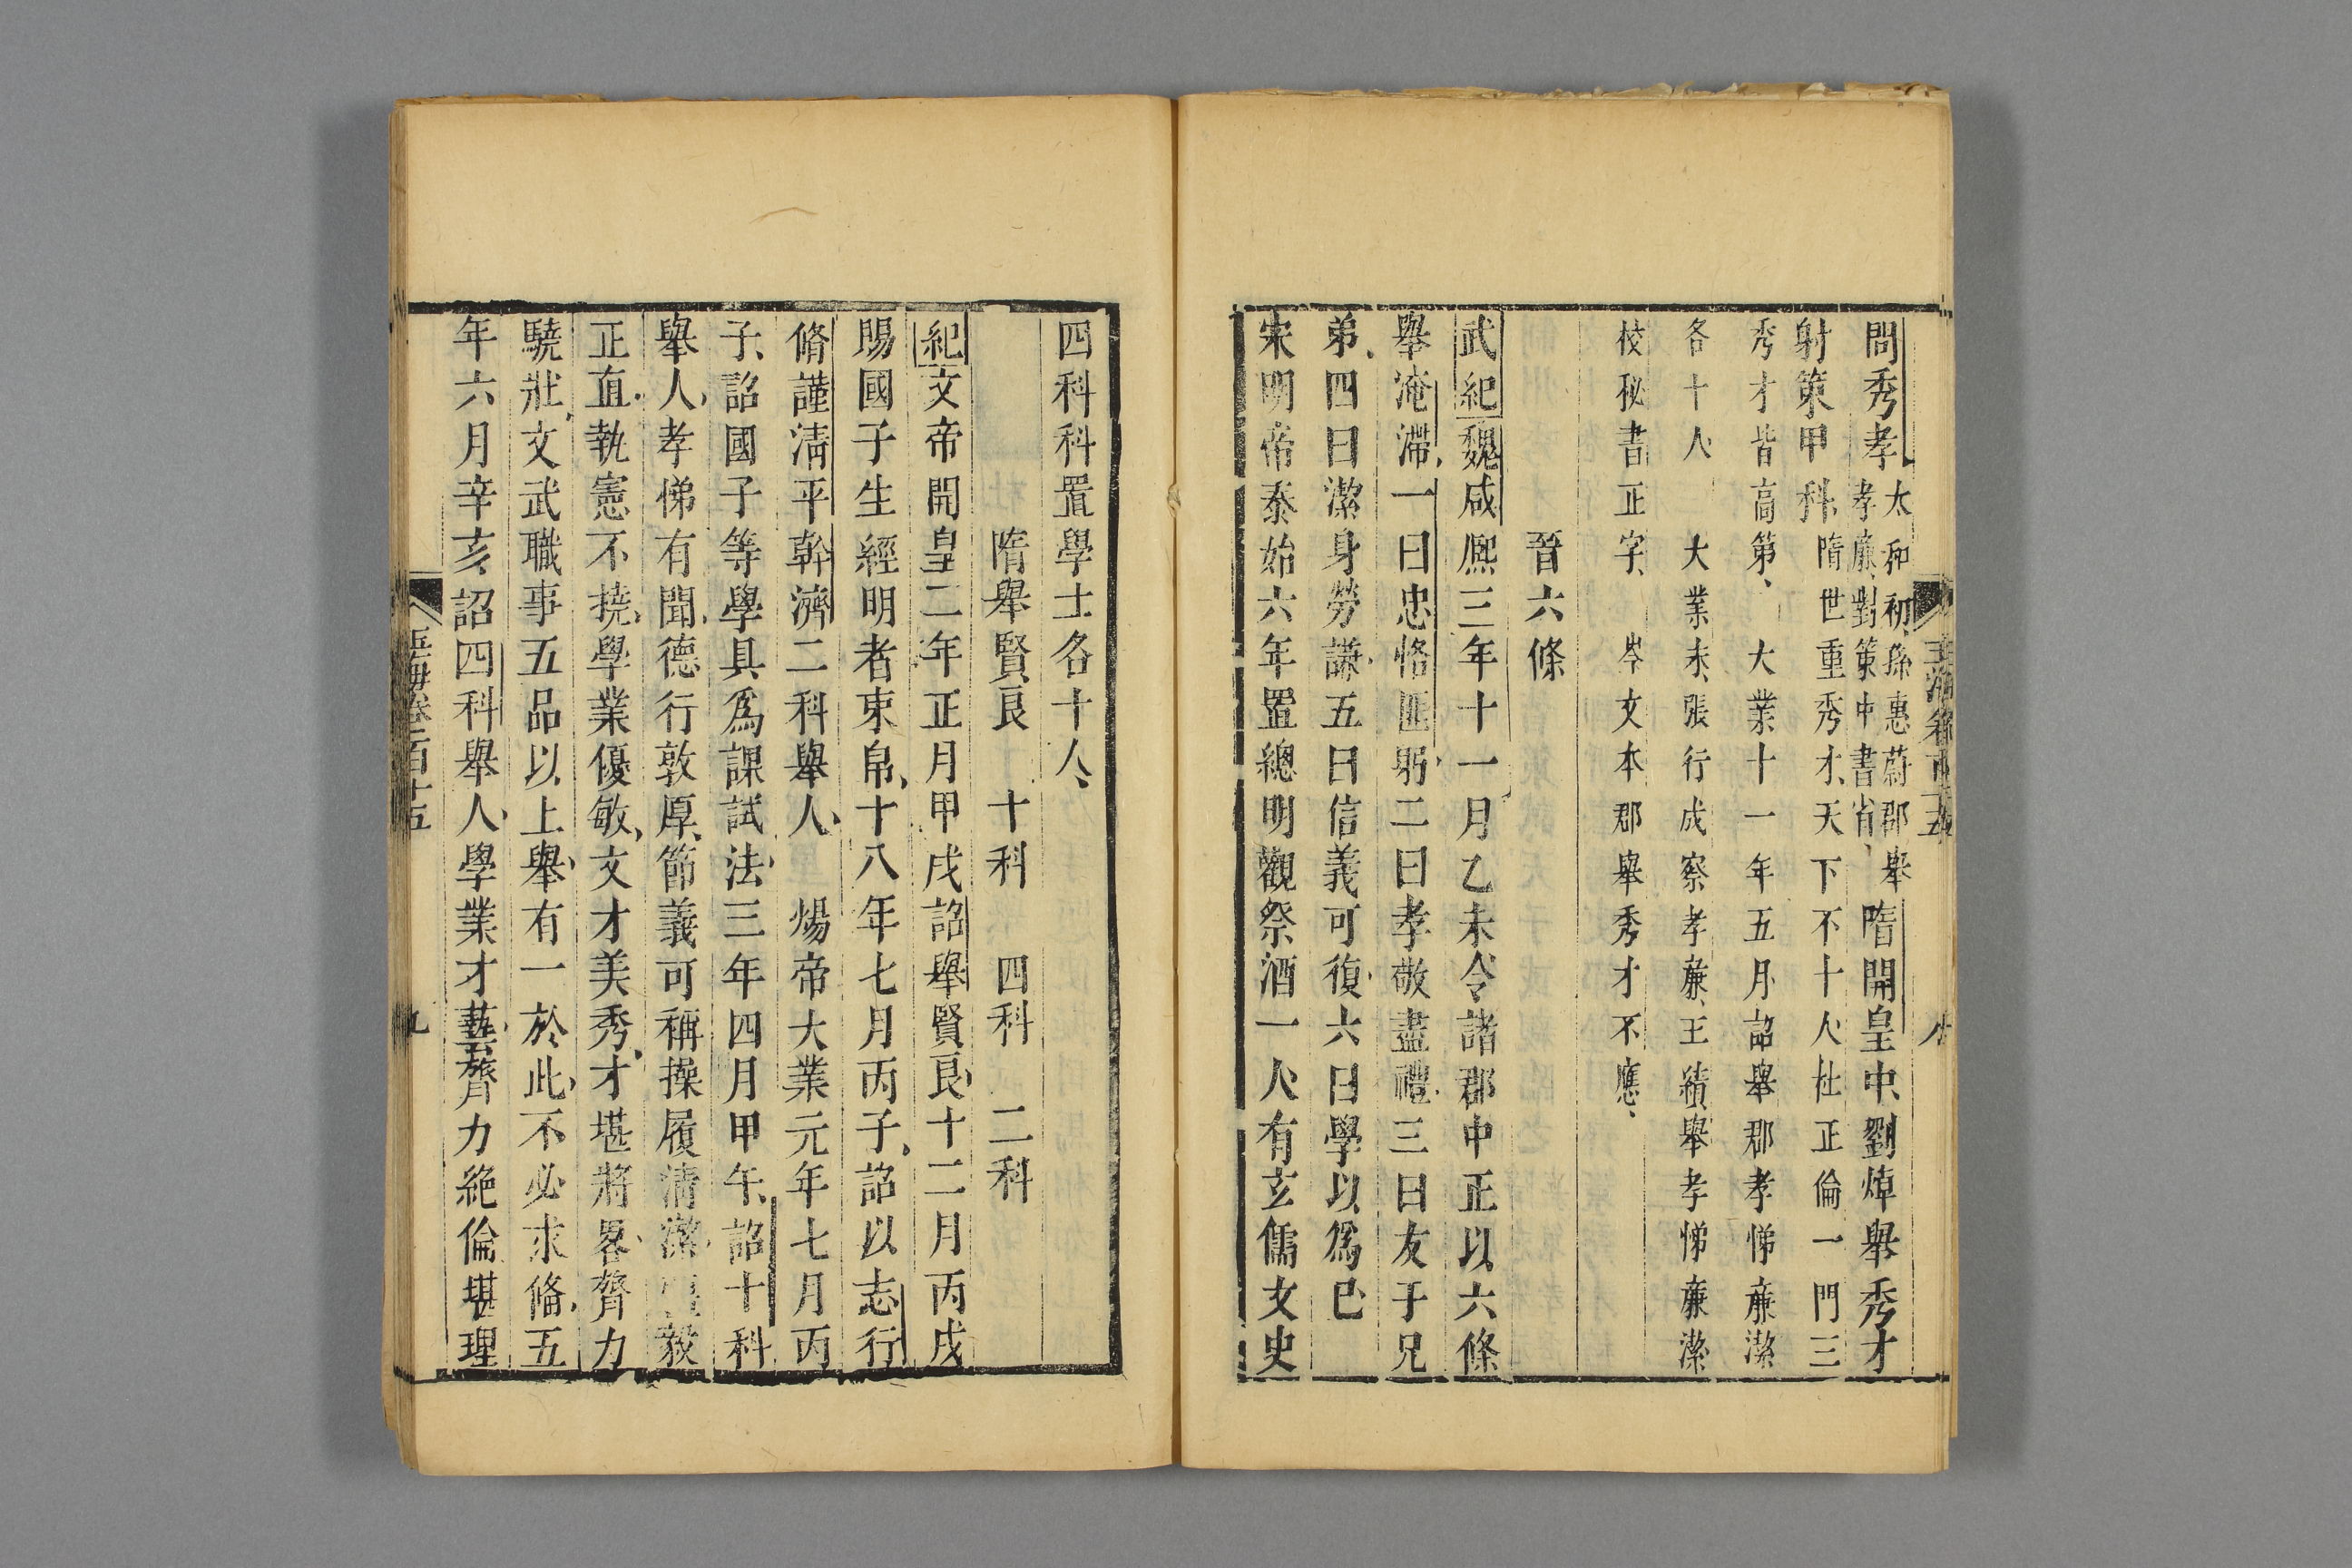 玉海卷百十五
八
問秀孝太和初孫惠蔚郡舉孝廉對策中書省隋開皇中劉焯舉秀才
射策甲科隋世重秀才天下不十人杜正倫一門三
秀才皆高第大業十一年五月詔舉郡孝悌廉潔
各十人大業末張行成察孝廉王績舉孝悌廉潔
校秘書正字岑文本郡舉秀才不應
晉六條
武紀魏咸熈三年十一月乙未令諸郡中正以六條
舉淹滯一曰忠恪匪躬二曰孝敬盡禮三曰友于兄
弟四曰潔身勞謙五曰信義可復六曰學以爲己
宋明帝泰始六年置總明觀祭酒一人有玄儒文史
四科科置學士各十人
隋舉賢良 十科 四科 二科
紀文帝開皇二年正月甲戌詔舉賢良十二月丙戌
賜國子生經明者束帛十八年七月丙子詔以志行
脩謹淸平幹濟二科舉人煬帝大業元年七月丙
子詔國子等學具爲課試法三年四月甲午詔十科
舉人孝悌有聞德行敦厚節義可稱操履淸潔毅
正直執憲不撓學業優敏文才美秀才堪將畧膂力
驍壯文武職事五品以上舉有一於此不必求偹五
年六月辛亥詔四科舉人學業才藝膂力絶倫堪理
玉海卷百十五
九